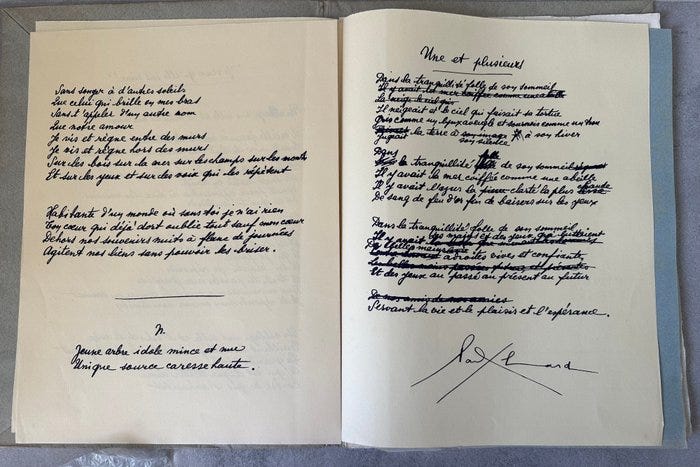 Sans songer à d'autres soleils
Que celui qui brille en mes bras
Sans t'appeler d'un autre nom
Que notre amour
Je vis et règne entre des murs
Je vis et règne hors des murs
Sur les bois sur la mer sur les champs sur les monts
Et sur les yeux et sur les voix qui les répètent
Habitante d'un monde où sans toi je n'ai rien
Ton cœur qui déjà dort oublie tout sauf mon cœur
Dehors nos souvenirs nuits à flanc de journées
Agitent nos liens sans pouvoir les briser.
N.
Jeune arbre idole mince et nue
Unique source caresse haute.
Une et plusieurs
Dans la tranquillité folle de son sommeil
Il y avait la mer coiffée comme une abeille
La neige le ciel gris
Il neigeait et le ciel qui faisait sa tortue
Gris comme un lynx aveugle et souverain comme un
la terre à son image à son hiver
son silence
Dans
la tranquillité folle de son sommeil
Il y avait la mer coiffée comme une abeille
Il y avait l'osier la clarté la plus chaude
De sang de feu d'or fin de baisers sur les yeux
Dans la tranquillité folle de son sommeil
Il y avait des mains et des yeux qui
De tailles adroites vives et confiantes
Et des yeux au passé au présent au futur
De nos amis de nos amies
Servant la vie et le plaisir et l'espérance.
Paul Eluard